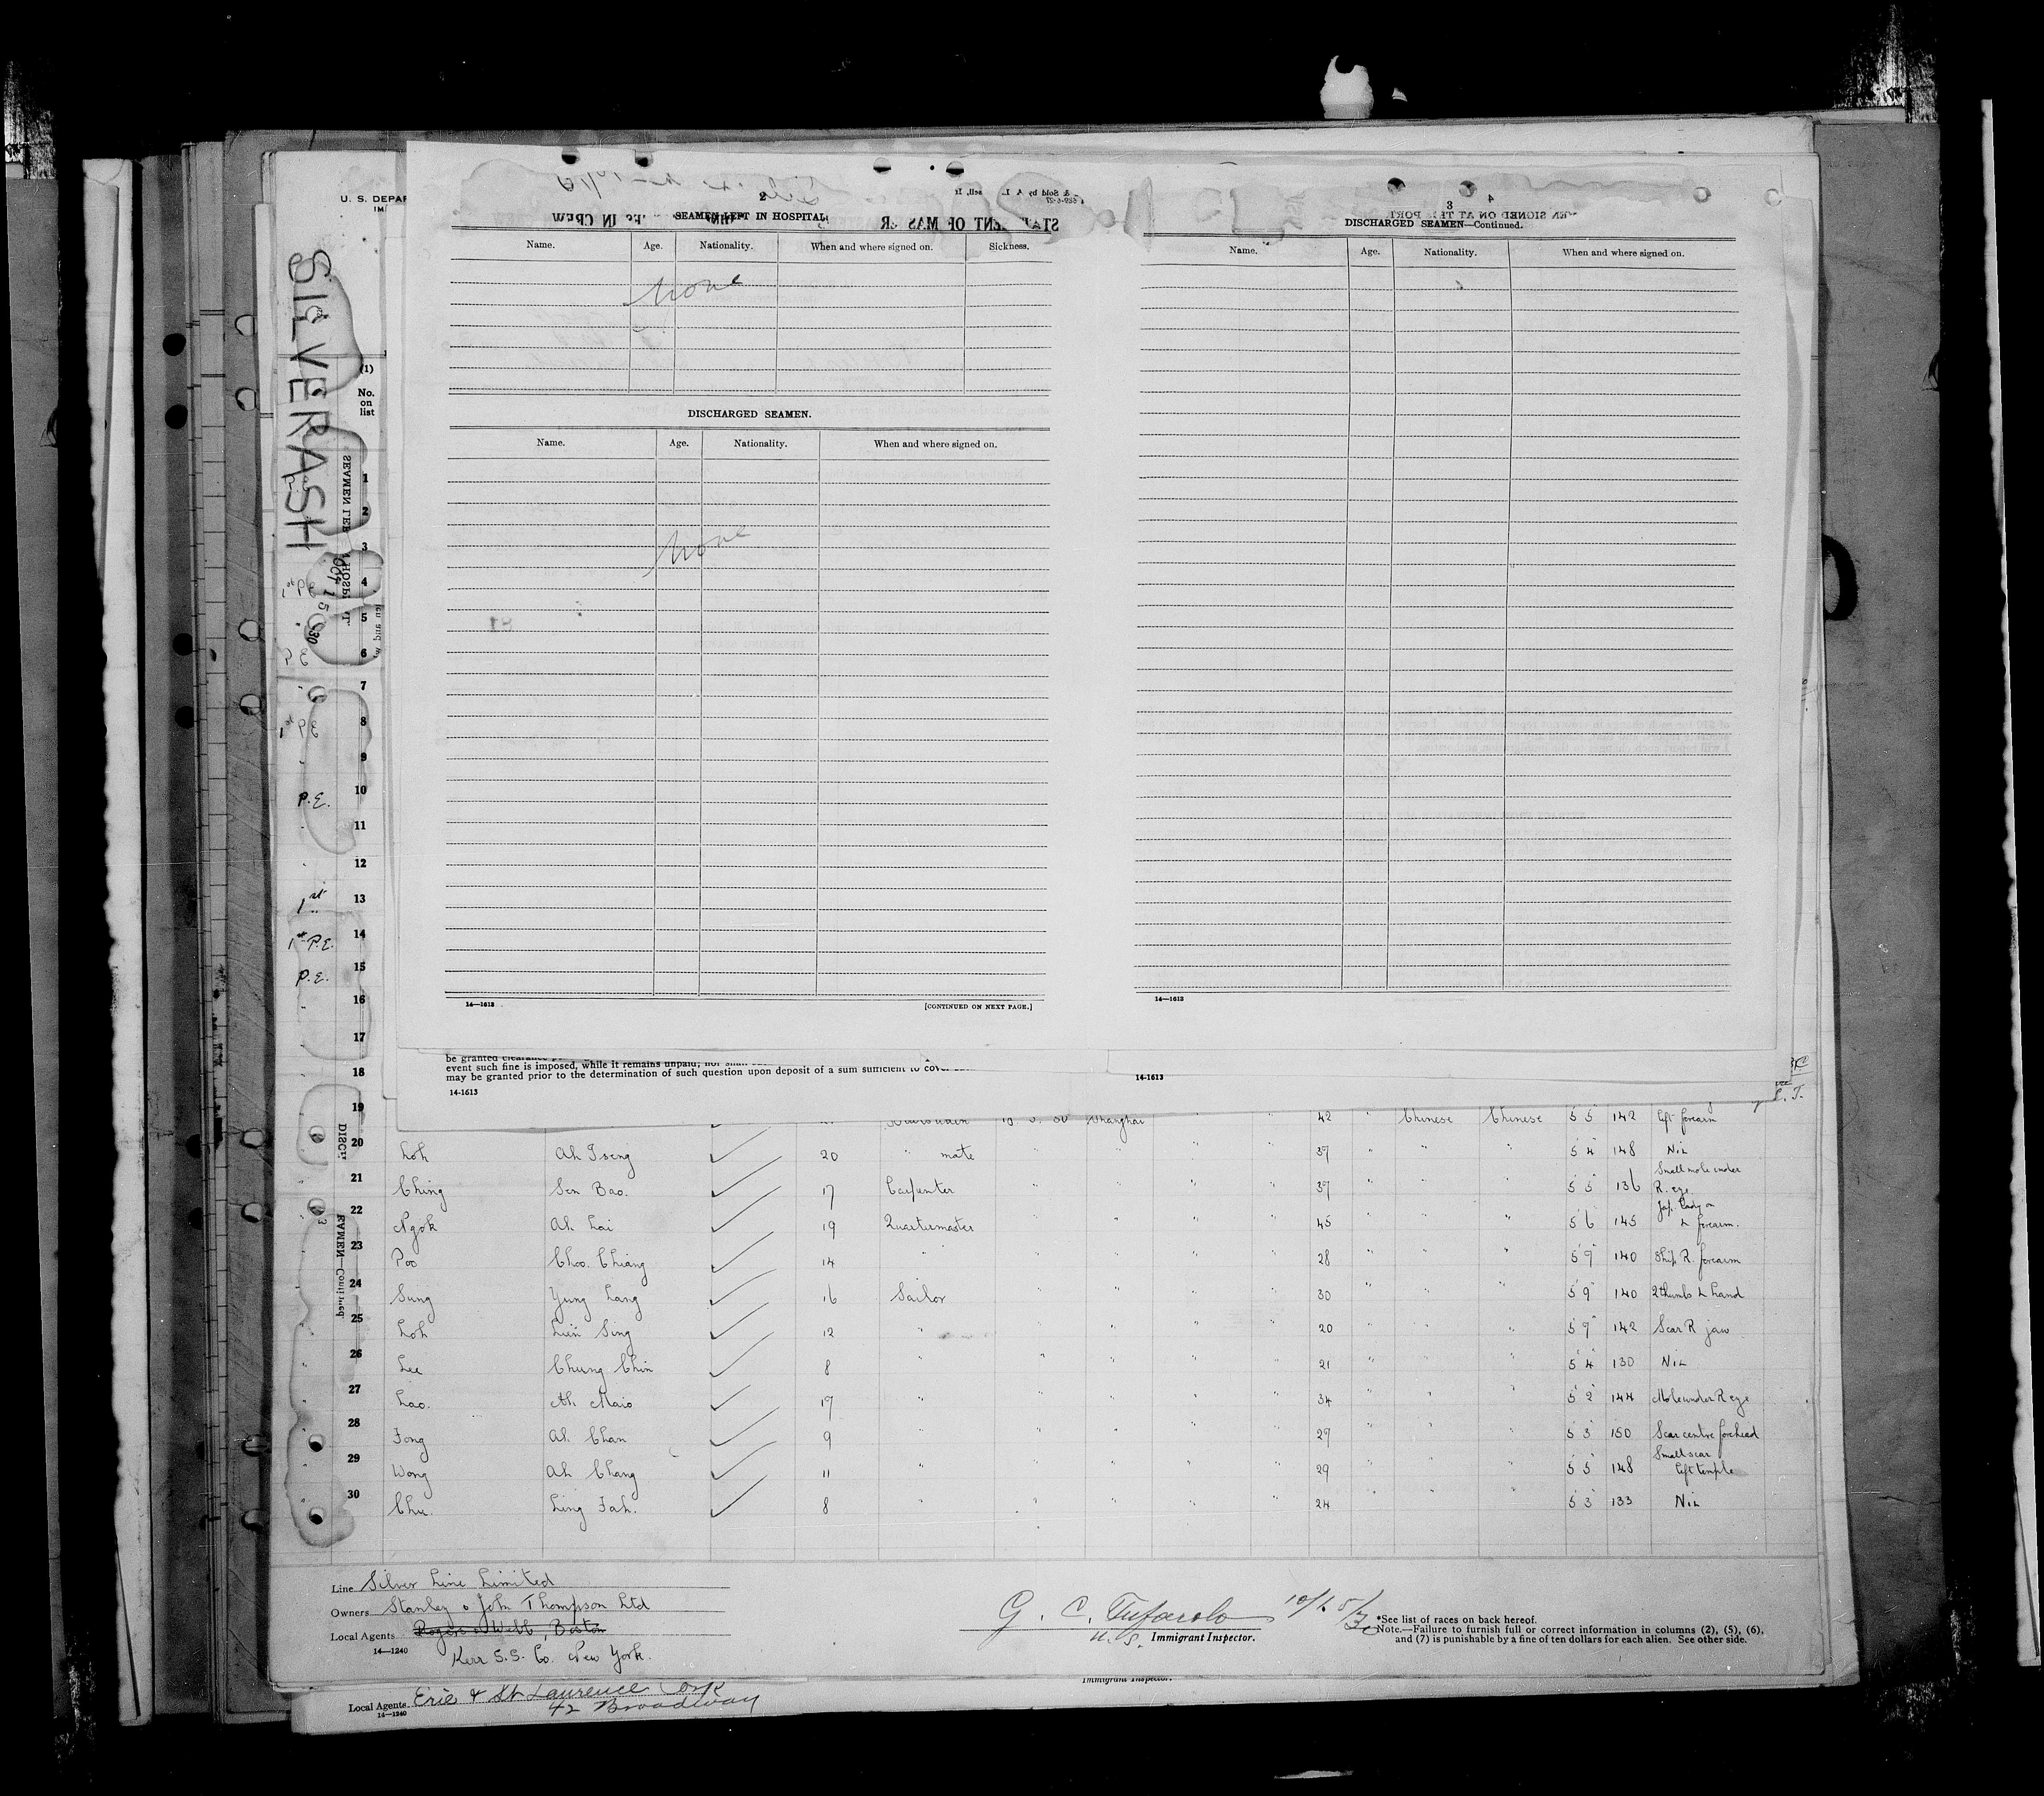 U. S. DEPAR
IM
SILVERASH
OCT 15 30
(1)
No. on list
2
SEAMEN LEFT IN HOSPITAL
Name. Age. Nationality. When and where signed on. Sickness.
None
DISCHARGED SEAMEN.
Name. Age. Nationality. When and where signed on.
None
14—1613 [CONTINUED ON NEXT PAGE.]
3
DISCHARGED SEAMEN—Continued.
Name. Age. Nationality. When and where signed on.
14—1613
event such fine is imposed, while it remains unpaid, nor shall
may be granted prior to the determination of such question upon deposit of a sum sufficient to cover
14-1613
14-1613
1
2
3
4
5
6
7
8
9
P.E. 10
11
12
1st 13
1st P.E. 14
P.E. 15
16
17
18
19 Shanghai 42 " Chinese Chinese 5 5 142 left forearm
20 Loh Ah Tseng 20 " mate " " " " 37 " " " 5 4 148 Nil
21 Ching Sen Bao. 17 Carpenter " " " " 37 " " " 5 5 136 Small mole under R. eye
22 Ngok Ah Lai 19 Quartermaster " " " " 45 " " " 5 6 145 Jap. lady on L forearm.
23 Poo Choo Chiang 14 " " " " " 28 " " " 5 9 140 Ship R. forearm
24 Sung Yung Lang 16 Sailor " " " " 30 " " " 5 9 140 2 thumbs L hand
25 Loh Lien Sing 12 " " " " " 20 " " " 5 9 142 Scar R jaw
26 Lee Chung Chin 8 " " " " " 21 " " " 5 4 130 Nil
27 Lao. Ah Maio 19 " " " " " 34 " " " 5 2 144 Mole under R eye
28 Fong Ah Chan 9 " " " " " 29 " " " 5 3 150 Scar centre forehead
29 Wong Ah Chang 11 " " " " " 29 " " " 5 5 148 Small scar left temple
30 Chu. Ling Fah. 8 " " " " " 24 " " " 5 3 133 Nil
Line Silver Line Limited
Owners Stanley & John Thompson Ltd
Local Agents Rogers & Webb, Boston
14—1240 Kerr S.S. Co. New York.
G. C. Tufarolo 10/15/30
U. S. Immigrant Inspector.
*See list of races on back hereof.
Note.—Failure to furnish full or correct information in columns (2), (5), (6),
and (7) is punishable by a fine of ten dollars for each alien. See other side.
Immigrant Inspector.
Local Agents Erie & St Laurence Cork
14—1240 42 Broadway